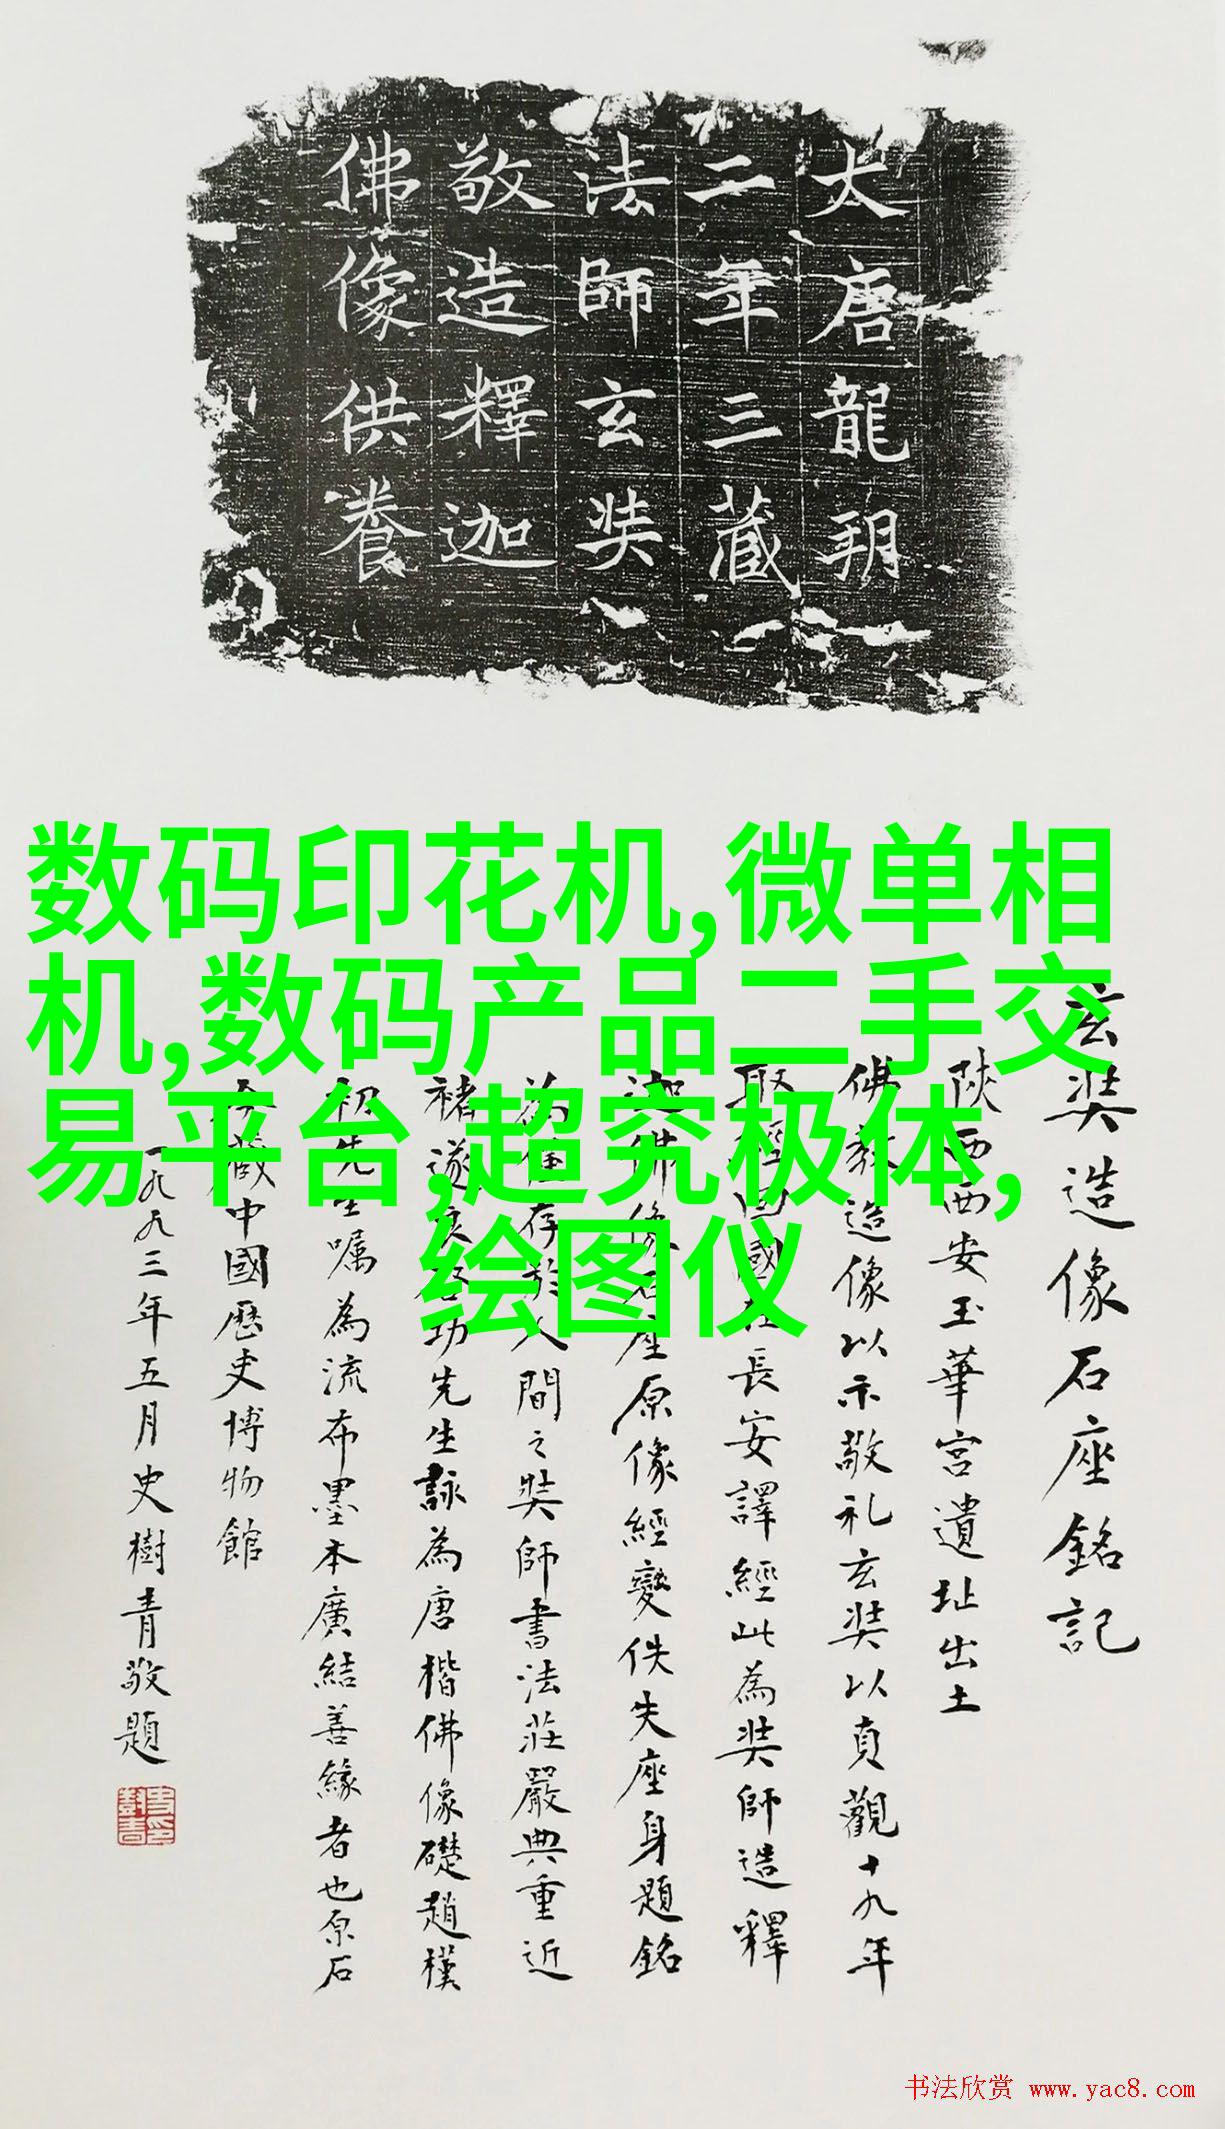 大唐龍朔
二年三藏
法師玄奘
敬造釋迦
佛像供養
数码印花机,微单相
机,数码产品二手交
易平台,超究极体,
绘图仪
玄奘造像石座銘記
陝西西安玉華宮遺址出土
佛教造像以示敬礼玄奘以貞觀十九年
取經回國在長安譯經此為奘師造釋
迦佛像石座原像經變佚失座身題銘
為僅存於人間之奘師書法莊嚴典重近
褚遂良啓功先生詠為唐楷佛像礎趙樸
初先生嘱為流布墨本廣結善緣者也原石
今藏中國歷史博物館
一九九三年五月史樹青敬題
书法欣赏 www.yac8.com